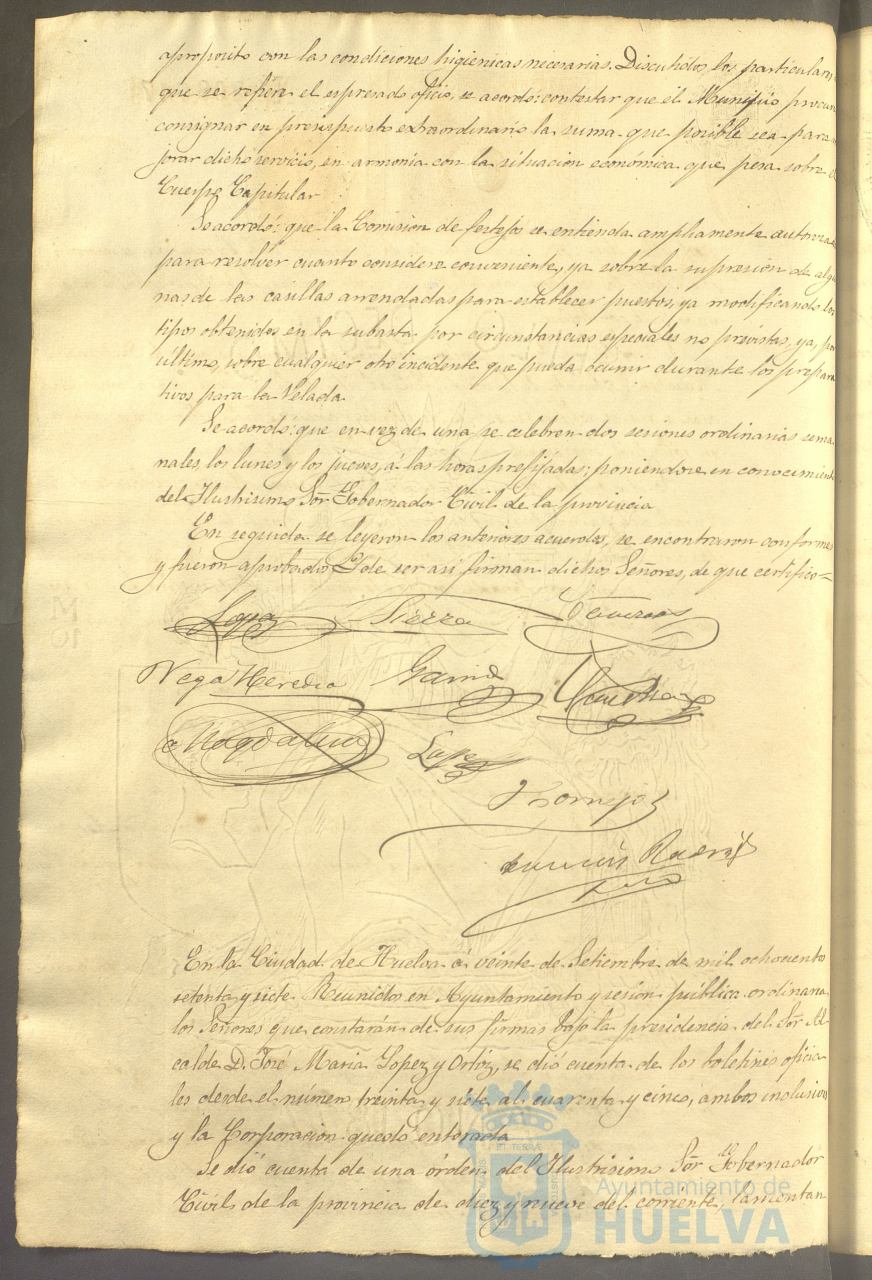 aproposito con las condiciones higienicas necesarias. Discutidos los particulares
que se refiere el espresado oficio, se acordó: contestar que el Municipio procura
consignar en presupuesto extraordinario la suma que posible sea para
jorar dicho servicio, en armonia con la situacion económica que pesa sobre el
Cuerpo Capitular
Se acordó: que la Comision de festejos se entienda ampliamente autoriza
para resolver cuanto considere conveniente, ya sobre la supresion de algu
nas de las casillas arrendadas para establecer puestos, ya modificando los
tipos obtenidos en la subasta por circunstancias especiales no previstas, ya, por
ultimo, sobre cualquier otro incidente que pueda ocurrir durante los prepara
tivos para la Velada
Se acordó: que en vez de una se celebren dos sesiones ordinarias sema
nales, los lunes y los jueves, á las horas prefijadas; poniendose en conocimiento
del Ilustrisimo Sor Gobernador Civil de la provincia
En seguida se leyeron los anteriores acuerdos, se encontraron conformes
y fueron aprobados. Y de ser asi firman dichos Señores, de que certifico=
Lopez
Vega Heredia Garrido
Magdalena Lopez
Cornejo
En la Ciudad de Huelva á veinte de Setiembre de mil ochocientos
setenta y siete Reunidos en Ayuntamiento y sesión pública ordinaria
los Señores que constarán de sus firmas bajo la presidencia del Sor Al-
calde D. José Maria Lopez y Ortiz, se dió cuenta de los boletines oficia-
les desde el número treinta y siete al cuarenta y cinco, ambos inclusive
y la Corporacion quedó enterada
Se dió cuenta de una órden del Ilustrisimo Sor Gobernador
Civil de la provincia de diez y nueve del corriente, lamentan
Ayuntamiento de
HUELVA